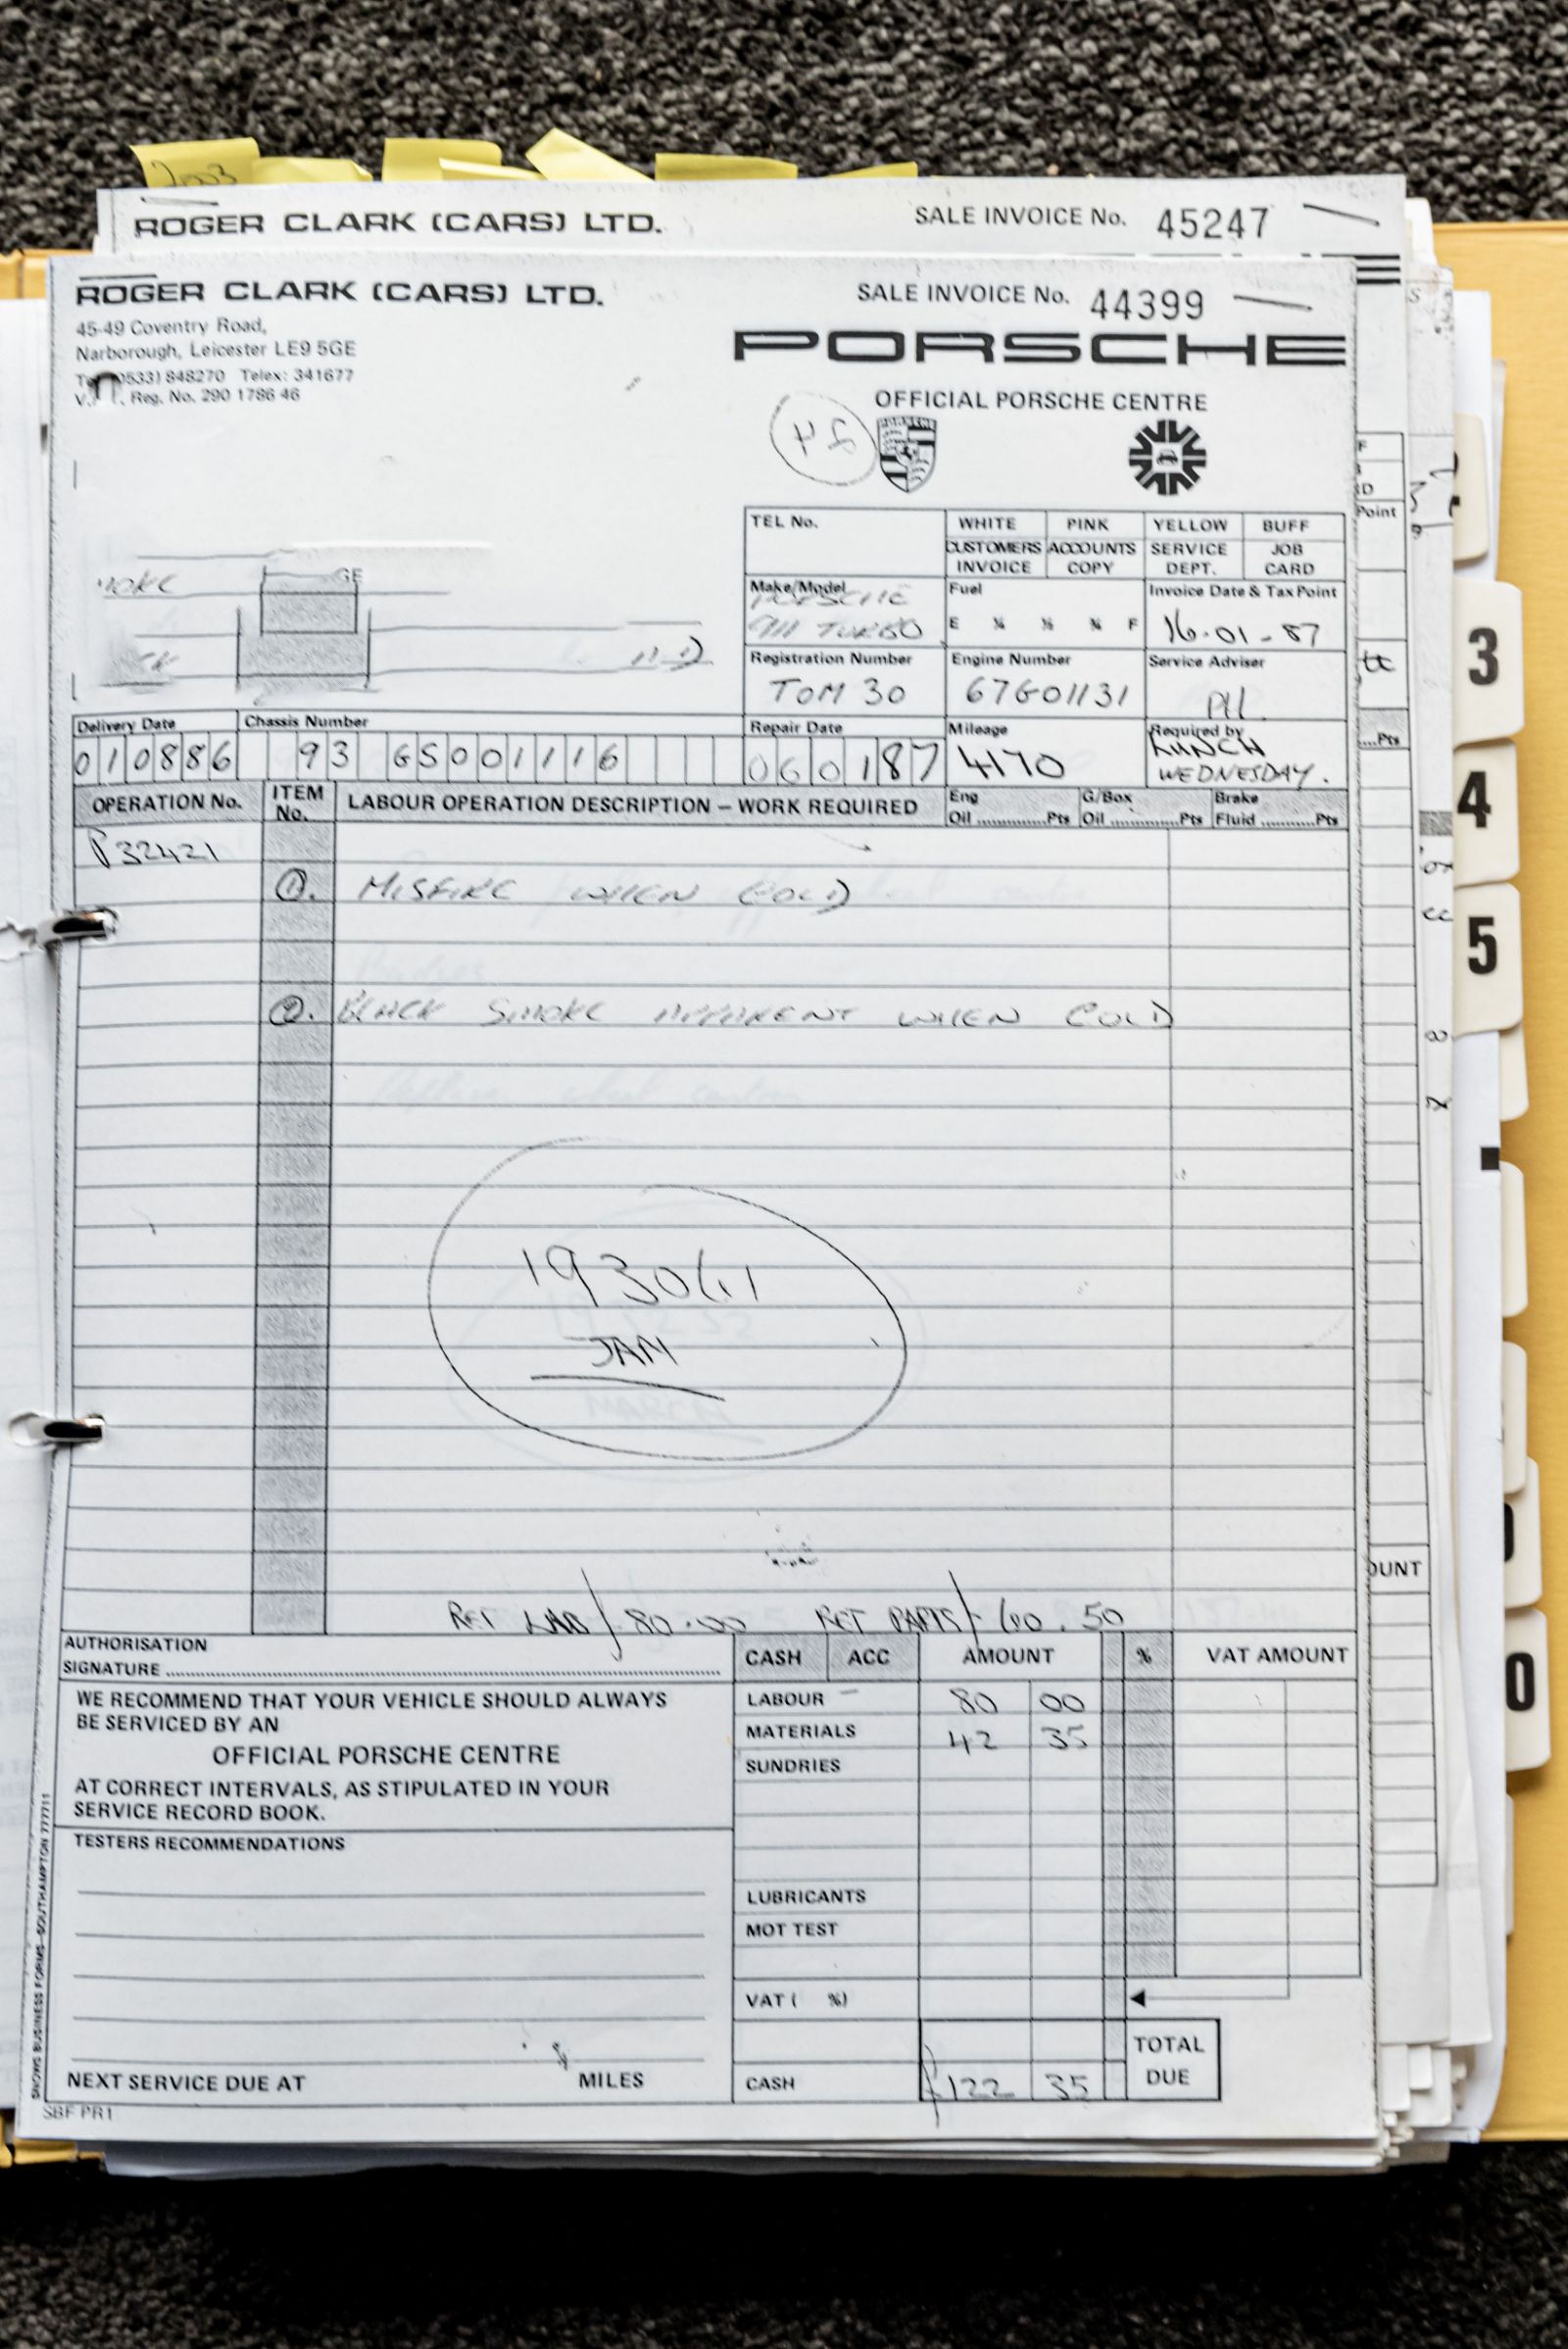 2003
ROGER CLARK (CARS) LTD.
SALE INVOICE No. 45247
ROGER CLARK (CARS) LTD.
SALE INVOICE No. 44399
45-49 Coventry Road,
Narborough, Leicester LE9 5GE
(0533) 848270 Telex: 341677
Reg. No. 290 1786 46
PORSCHE
OFFICIAL PORSCHE CENTRE
PORSCHE
TEL No.
WHITE PINK YELLOW BUFF
CUSTOMERS INVOICE
ACCOUNTS COPY
SERVICE DEPT.
JOB CARD
GE
Make/Model
PORSCHE
911 TURBO
Fuel
E ¼ ½ ¾ F
Invoice Date & Tax Point
16-01-87
Registration Number
TOM 30
Engine Number
67G01131
Service Adviser
PH
Delivery Date
010886
Chassis Number
93 GS001116
Repair Date
060187
Mileage
4170
Required by
LUNCH
WEDNESDAY.
OPERATION No.
ITEM No.
LABOUR OPERATION DESCRIPTION – WORK REQUIRED
Eng Oil ............Pts
G/Box Oil ............Pts
Brake Fluid ..........Pts
P32421
1. MISFIRE WHEN COLD
2. BLACK SMOKE APPARENT WHEN COLD
JAN
MARCH
RET LAB £80.00 RET PARTS £60.50
AUTHORISATION
SIGNATURE
CASH ACC AMOUNT % VAT AMOUNT
WE RECOMMEND THAT YOUR VEHICLE SHOULD ALWAYS
BE SERVICED BY AN
OFFICIAL PORSCHE CENTRE
AT CORRECT INTERVALS, AS STIPULATED IN YOUR
SERVICE RECORD BOOK.
LABOUR 80 00
MATERIALS 42 35
SUNDRIES
TESTERS RECOMMENDATIONS
LUBRICANTS
MOT TEST
VAT ( %)
TOTAL DUE
CASH £122 35
NEXT SERVICE DUE AT MILES
SNOWS BUSINESS FORMS–SOUTHAMPTON 777711
SBF PR1
Point
....Pts
OUNT
3
4
5
0